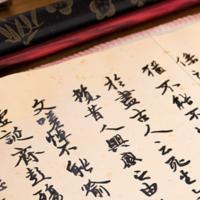 猶不能不
於盡古人云死生
覽昔人興感之由
文嗟悼不能喻
虛誕齊彭殤